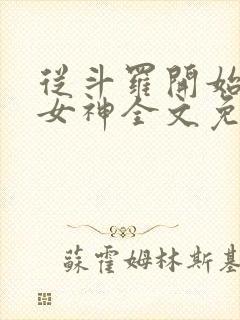 從斗羅開始
女神全文免
蘇霍姆林斯基